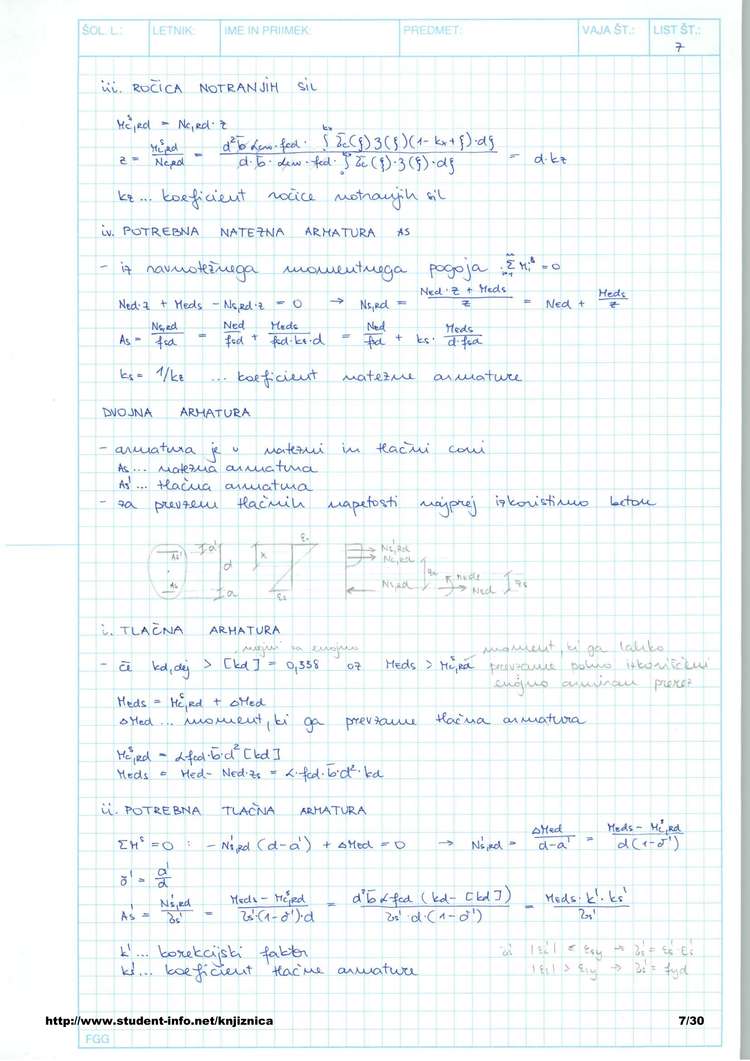 ŠOL. L.: LETNIK: IME IN PRIIMEK: PREDMET: VAJA ŠT.: LIST ŠT.:
7
iii. ROČICA NOTRANJIH SIL
Mc,Rd^s = Nc,Rd · z
z = Mc,Rd^s / Nc,Rd = d · kz
kz ... koeficient ročice notranjih sil
iv. POTREBNA NATEZNA ARMATURA AS
- iz ravnotežnega momentnega pogoja Σ Mi^s = 0
Ned·z + Meds - Ns,Rd·z = 0 → Ns,Rd = (Ned·z + Meds) / z = Ned + Meds / z
As = Ns,Rd / fsd = Ned / fsd + Meds / (fsd·kz·d) = Ned / fsd + ks · Meds / (d·fsd)
ks = 1/kz ... koeficient natezne armature
DVOJNA ARMATURA
- armatura je v natezni in tlačni coni
As ... natezna armatura
As' ... tlačna armatura
- za prevzem tlačnih napetosti najprej izkoristimo beton
As' a' d x εc Ns',Rd
Nc,Rd
As a εs Ns,Rd Meds Ned zs
i. TLAČNA ARMATURA
mejni za enojno moment, ki ga lahko
- če kd,dej > [kd] = 0,338 oz Meds > Mc,Rd^s prevzame polno izkoriščeni
enojno armiran prerez
Meds = Mc,Rd^s + ΔMed
ΔMed ... moment, ki ga prevzame tlačna armatura
Mc,Rd^s = α·fcd·b·d² [kd]
Meds = Med - Ned·zs = α·fcd·b·d²·kd
ii. POTREBNA TLAČNA ARMATURA
ΣM^s = 0 : - Ns',Rd (d-a') + ΔMed = 0 → Ns',Rd = ΔMed / (d-a') = (Meds - Mc,Rd^s) / (d(1-δ'))
δ' = a' / d
As' = Ns',Rd / σs' = (Meds - Mc,Rd^s) / (σs'·(1-δ')·d) = d²b α fcd (kd - [kd]) / (σs'·d·(1-δ')) = Meds · k' · ks' / σs'
k' ... korekcijski faktor
ks' ... koeficient tlačne armature
σs' |εs'| ≤ εsy → σs' = εs' Es'
|εs'| > εsy → σs' = fyd
http://www.student-info.net/knjiznica 7/30
FGG